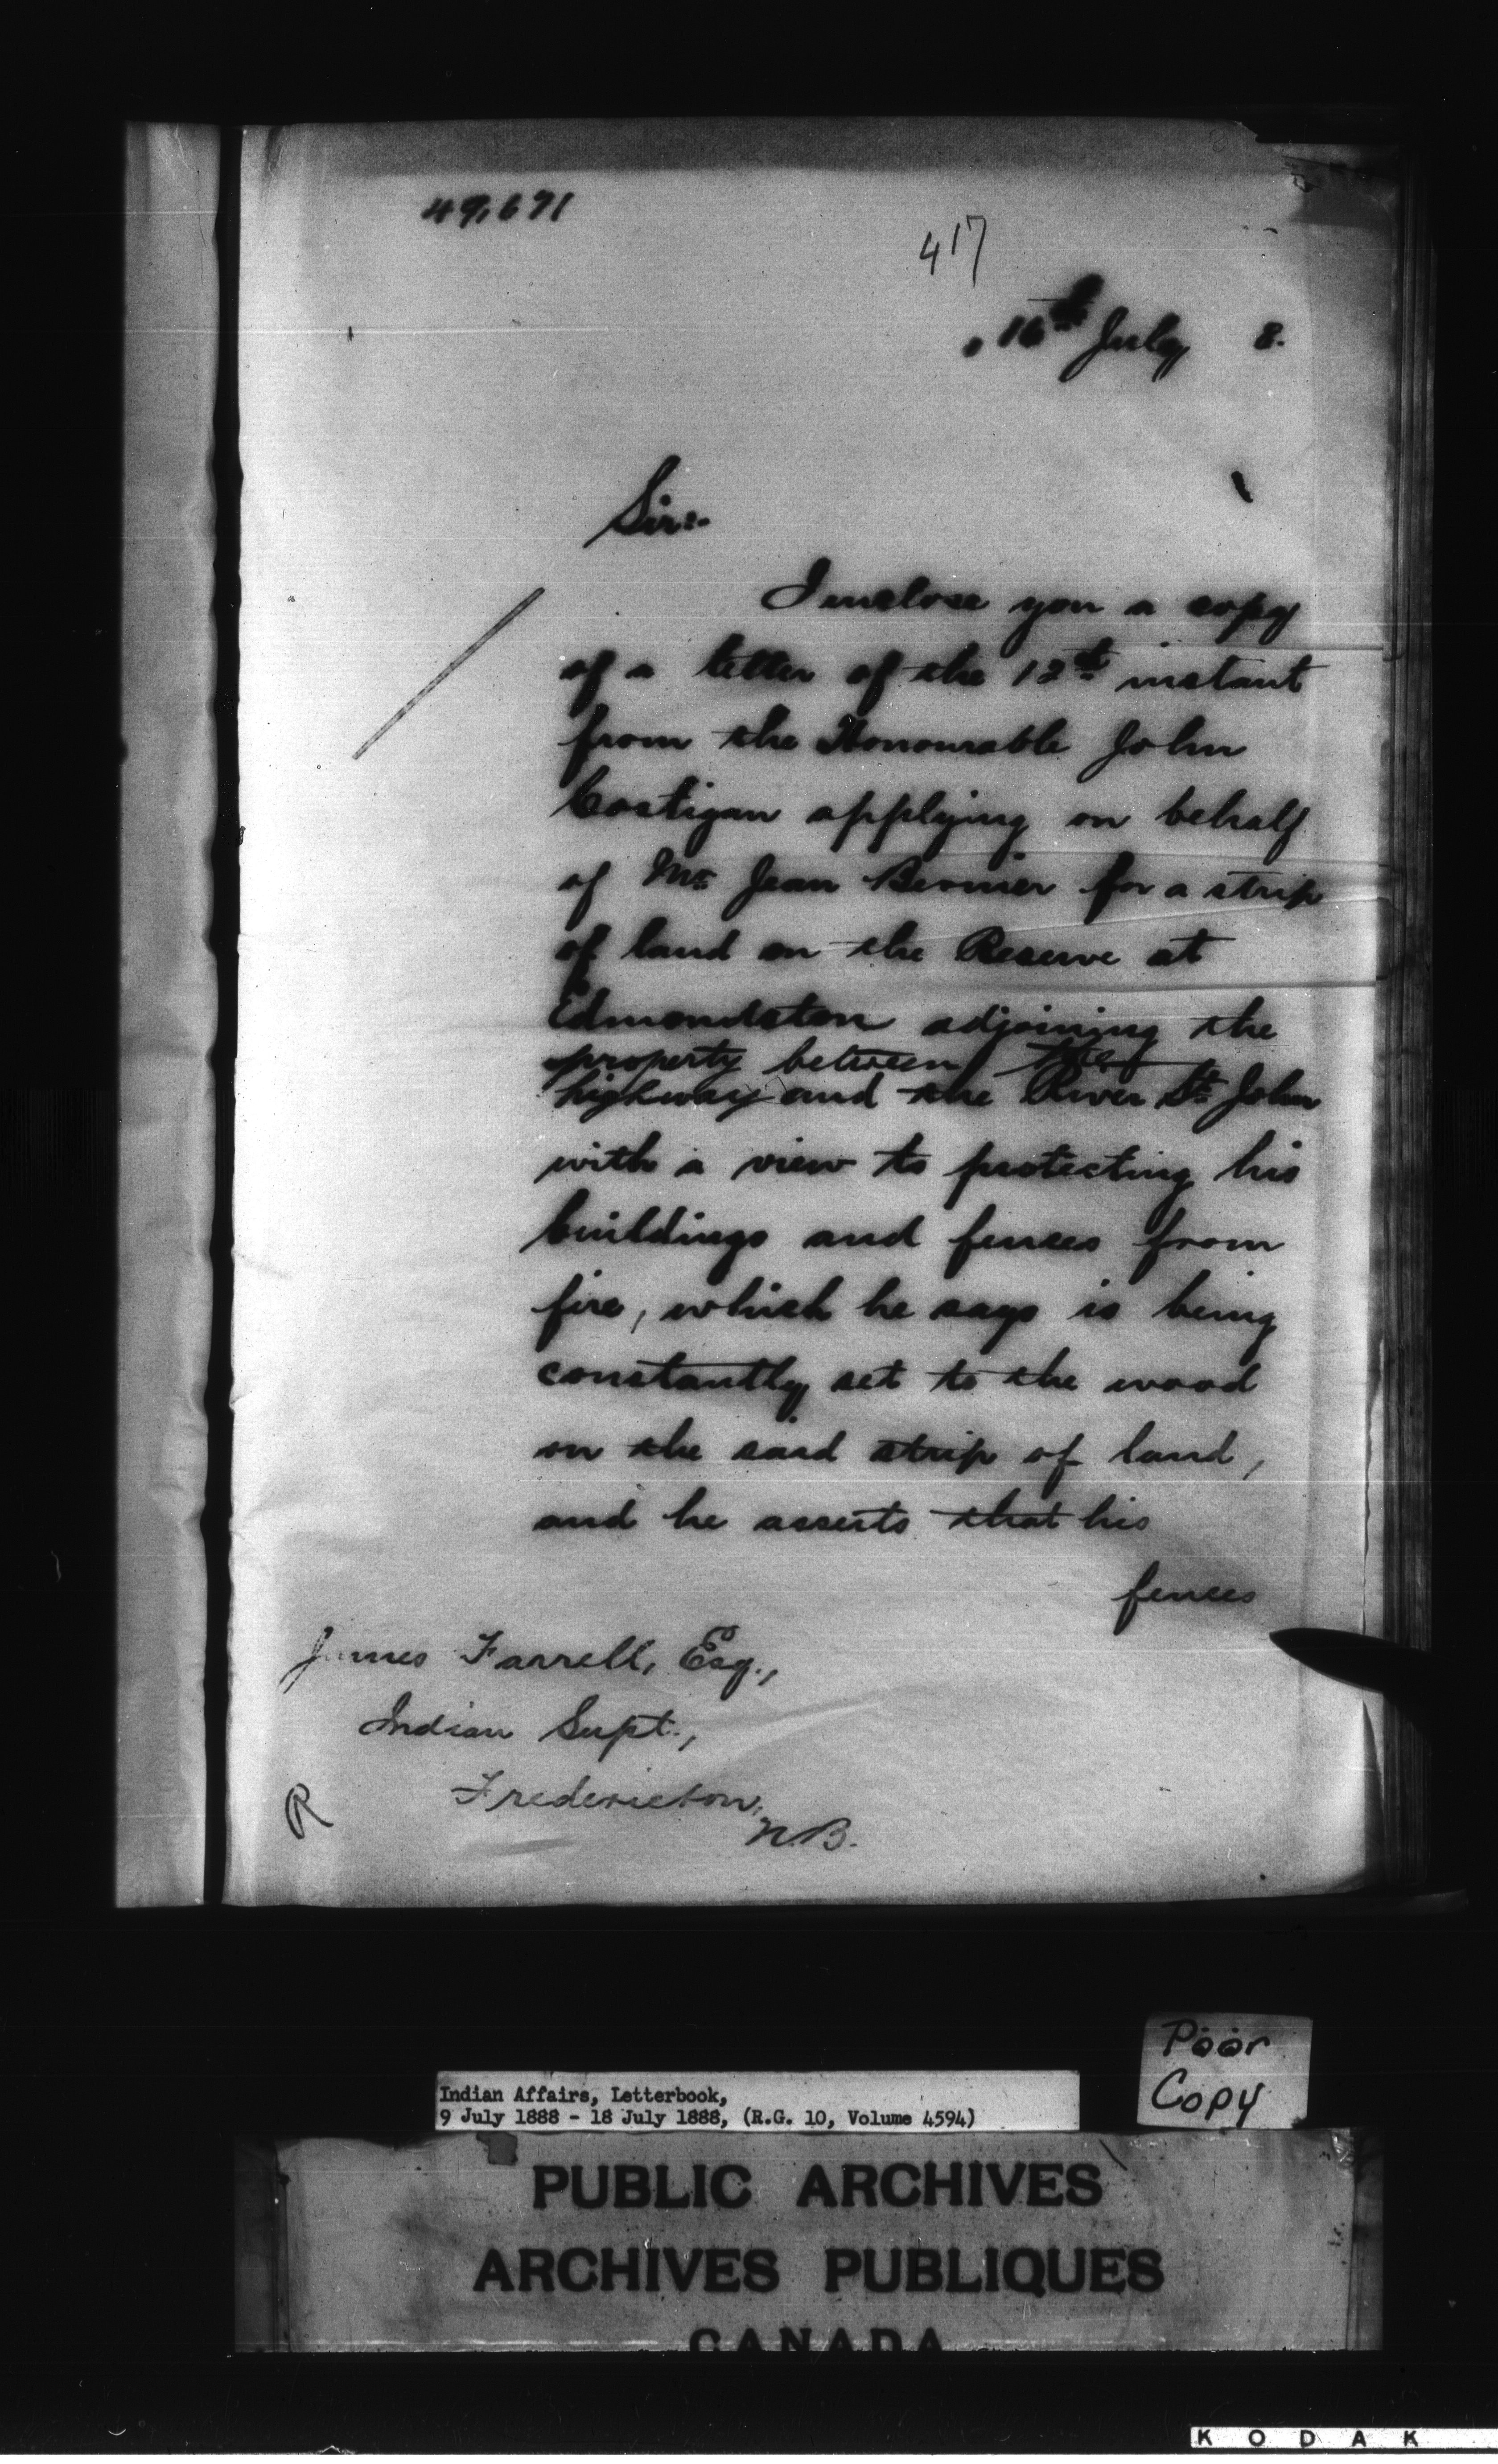 49,671
417
16th July 8.
Sir:-
I enclose you a copy
of a letter of the 12th instant
from the Honourable John
Costigan applying on behalf
of Mr Jean Bernier for a strip
of land on the Reserve at
Edmondston adjoining the
property between the
highway and the River St John
with a view to protecting his
buildings and fences from
fire, which he says is being
constantly set to the wood
on the said strip of land,
and he asserts that his
fences
James Farrell, Esq.,
Indian Supt.,
Fredericton,
N.B.
R
Poor
Copy
Indian Affairs, Letterbook,
9 July 1888 - 18 July 1888, (R.G. 10, Volume 4594)
PUBLIC ARCHIVES
ARCHIVES PUBLIQUES
CANADA
KODAK